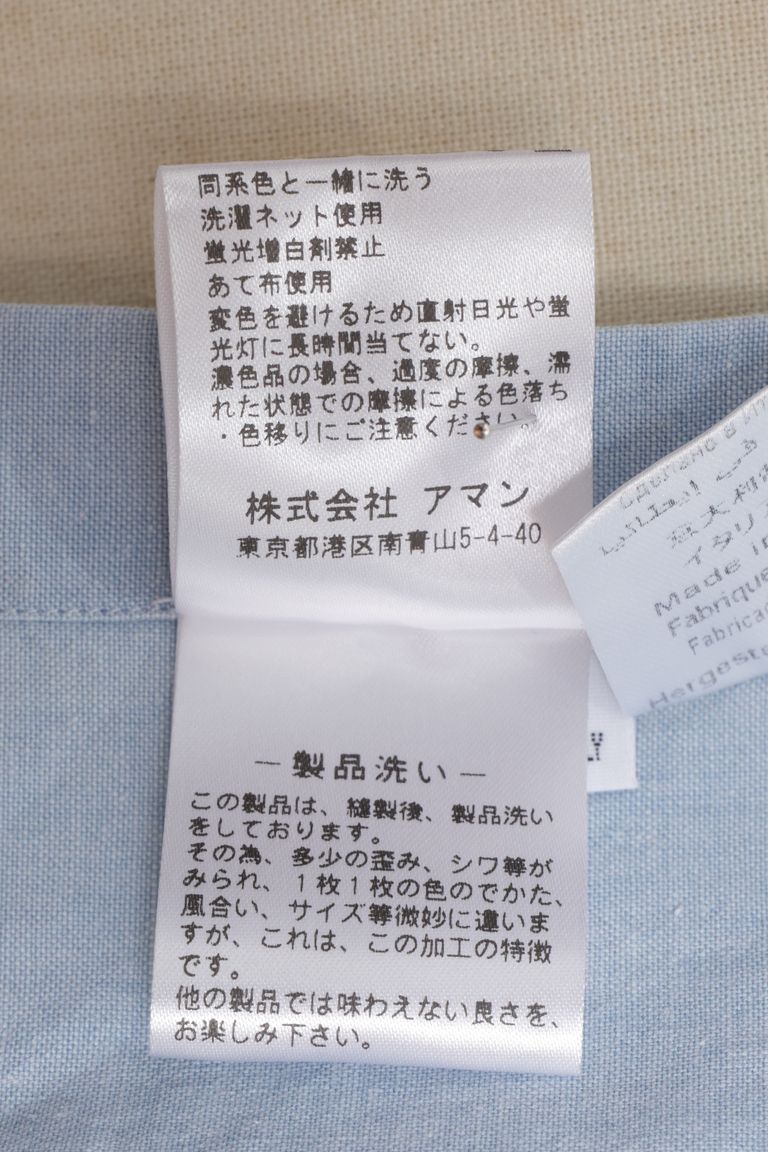 同系色と一緒に洗う
洗濯ネット使用
蛍光増白剤禁止
あて布使用
変色を避けるため直射日光や蛍
光灯に長時間当てない。
濃色品の場合、過度の摩擦、濡
れた状態での摩擦による色落ち
・色移りにご注意ください。
株式会社 アマン
東京都港区南青山5-4-40
－製品洗い－
この製品は、縫製後、製品洗い
をしております。
その為、多少の歪み、シワ等が
みられ、1枚1枚の色のでかた、
風合い、サイズ等微妙に違いま
すが、これは、この加工の特徴
です。
他の製品では味わえない良さを、
お楽しみ下さい。
意大利
イタリ
Made in
Fabrique
Fabricad
Hergest
LY